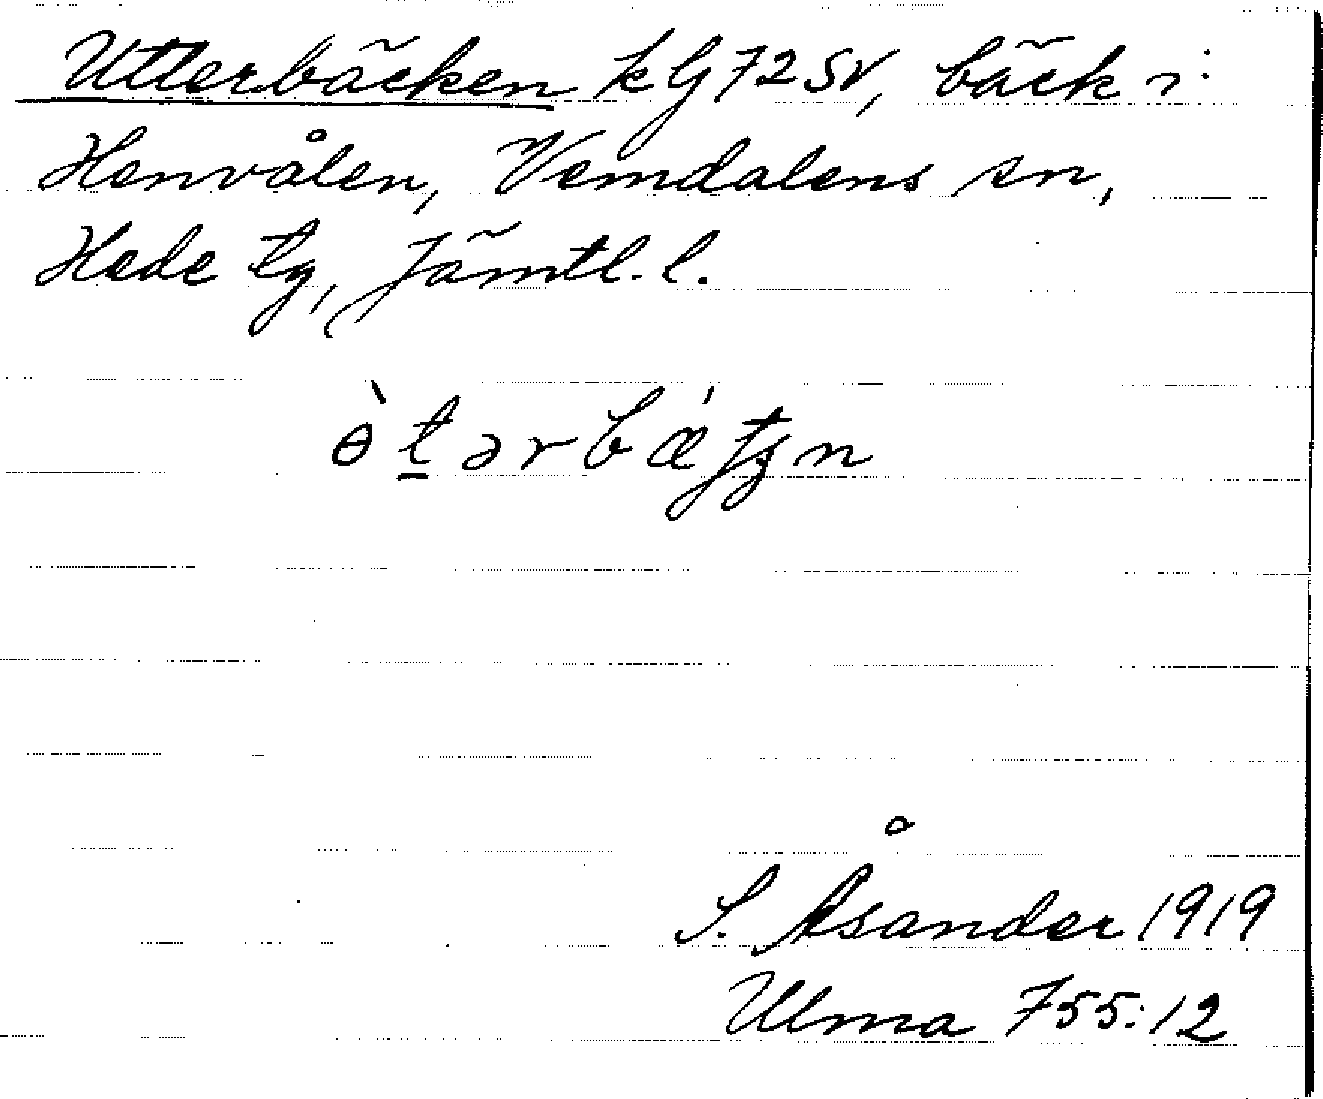 Utterbäcken kG72SV, bäck i
Henvålen, Vemdalens sn,
Hede tg, Jämtl. l.
ɵ̀t̲ərbǽʈʂn
S. Åsander 1919
Ulma 755:12